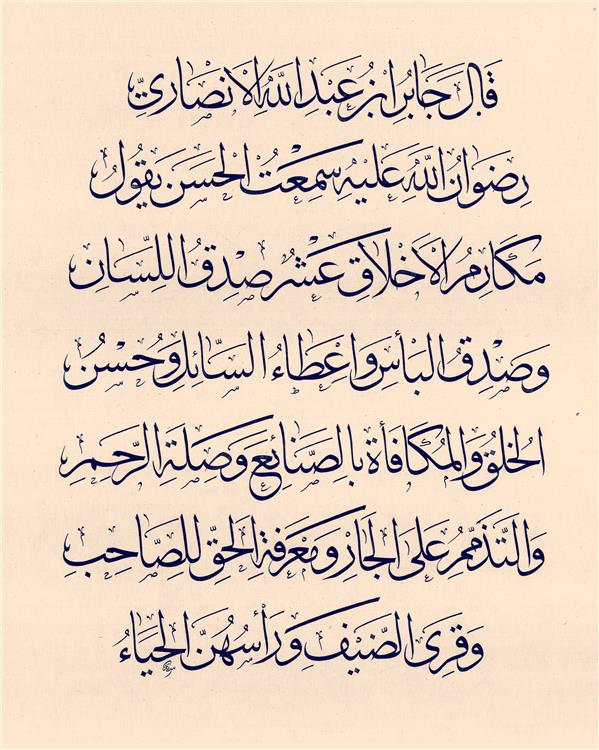 قَالَ جَابِرُ ابْنُ عَبْدِ اللَّهِ الْأَنْصَارِيِّ
رِضْوَانُ اللَّهِ عَلَيْهِ سَمِعْتُ الْحَسَنَ يَقُولُ
مَكَارِمُ الْأَخْلَاقِ عَشْرٌ صِدْقُ اللِّسَانِ
وَصِدْقُ الْبَأْسِ وَإِعْطَاءُ السَّائِلِ وَحُسْنُ
الْخُلُقِ وَالْمُكَافَأَةُ بِالصَّنَائِعِ وَصِلَةُ الرَّحِمِ
وَالتَّذَمُّمُ عَلَى الْجَارِ وَمَعْرِفَةُ الْحَقِّ لِلصَّاحِبِ
وَقِرَى الضَّيْفِ وَرَأْسُهُنَّ الْحَيَاءُ